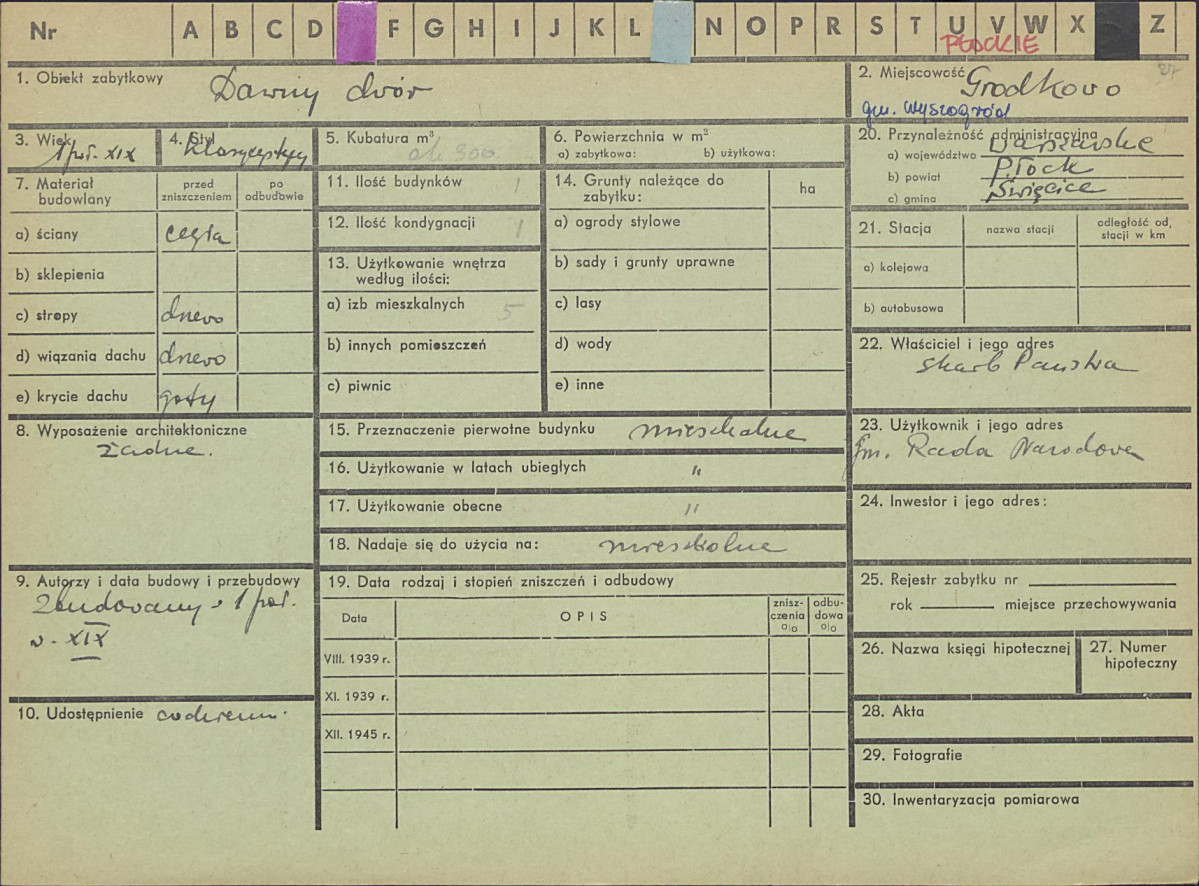 Nr A B C D F G H I J K L N O P R S T U V W X Z
PŁOCKIE
1. Obiekt zabytkowy Dawny dwór
2. Miejscowość Grodkowo
27
gm. Wyszogród
3. Wiek 1 poł. XIX
4. Styl klasycystyczny
5. Kubatura m³ ok 300
6. Powierzchnia w m²
a) zabytkowa: b) użytkowa:
20. Przynależność administracyjna
a) województwo Warszawskie
b) powiat Płock
c) gmina Święcice
7. Materiał budowlany
przed zniszczeniem
po odbudowie
a) ściany cegła
b) sklepienia
c) stropy drewo
d) wiązania dachu drewo
e) krycie dachu gonty
11. Ilość budynków 1
12. Ilość kondygnacji 1
13. Użytkowanie wnętrza
według ilości:
a) izb mieszkalnych 5
b) innych pomieszczeń
c) piwnic
14. Grunty należące do
zabytku:
ha
a) ogrody stylowe
b) sady i grunty uprawne
c) lasy
d) wody
e) inne
21. Stacja
nazwa stacji
odległość od,
stacji w km
a) kolejowa
b) autobusowa
22. Właściciel i jego adres
skarb Państwa
8. Wyposażenie architektoniczne
żadne.
15. Przeznaczenie pierwotne budynku mieszkalne
16. Użytkowanie w latach ubiegłych "
17. Użytkowanie obecne "
18. Nadaje się do użycia na: mieszkalne
23. Użytkownik i jego adres
Gm. Rada Narodowa
24. Inwestor i jego adres:
9. Autorzy i data budowy i przebudowy
Zbudowany w 1 poł.
w. XIX
10. Udostępnienie codzienni.
19. Data rodzaj i stopień zniszczeń i odbudowy
Data
OPIS
znisz-
czenia
o|o
odbu-
dowa
o|o
VIII. 1939 r.
XI. 1939 r.
XII. 1945 r.
25. Rejestr zabytku nr
rok miejsce przechowywania
26. Nazwa księgi hipotecznej
27. Numer
hipoteczny
28. Akta
29. Fotografie
30. Inwentaryzacja pomiarowa